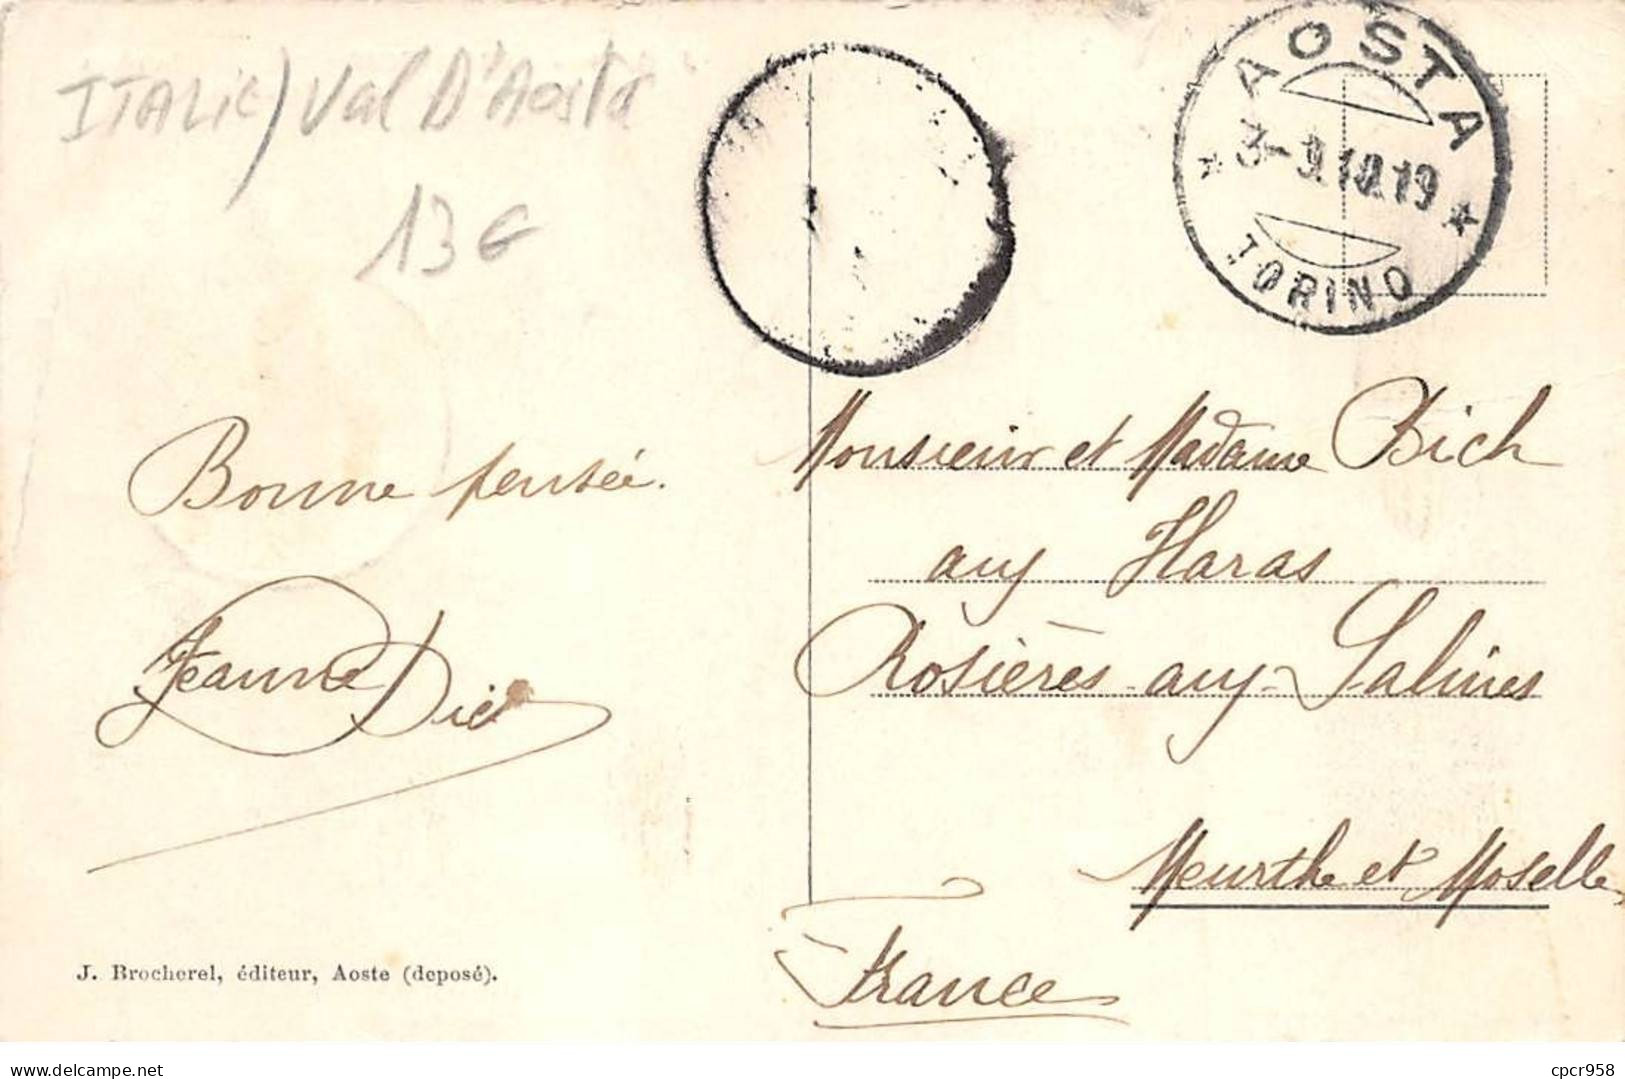 ITALIE) Val D'Aosta
13€
AOSTA
TORINO
Bonne pensée.
Jeanne
Monsieur et Madame Bich
aux Haras
Rosières-aux-Salines
Meurthe et Moselle
France
J. Brocherel, éditeur, Aoste (deposé).
cpcr958